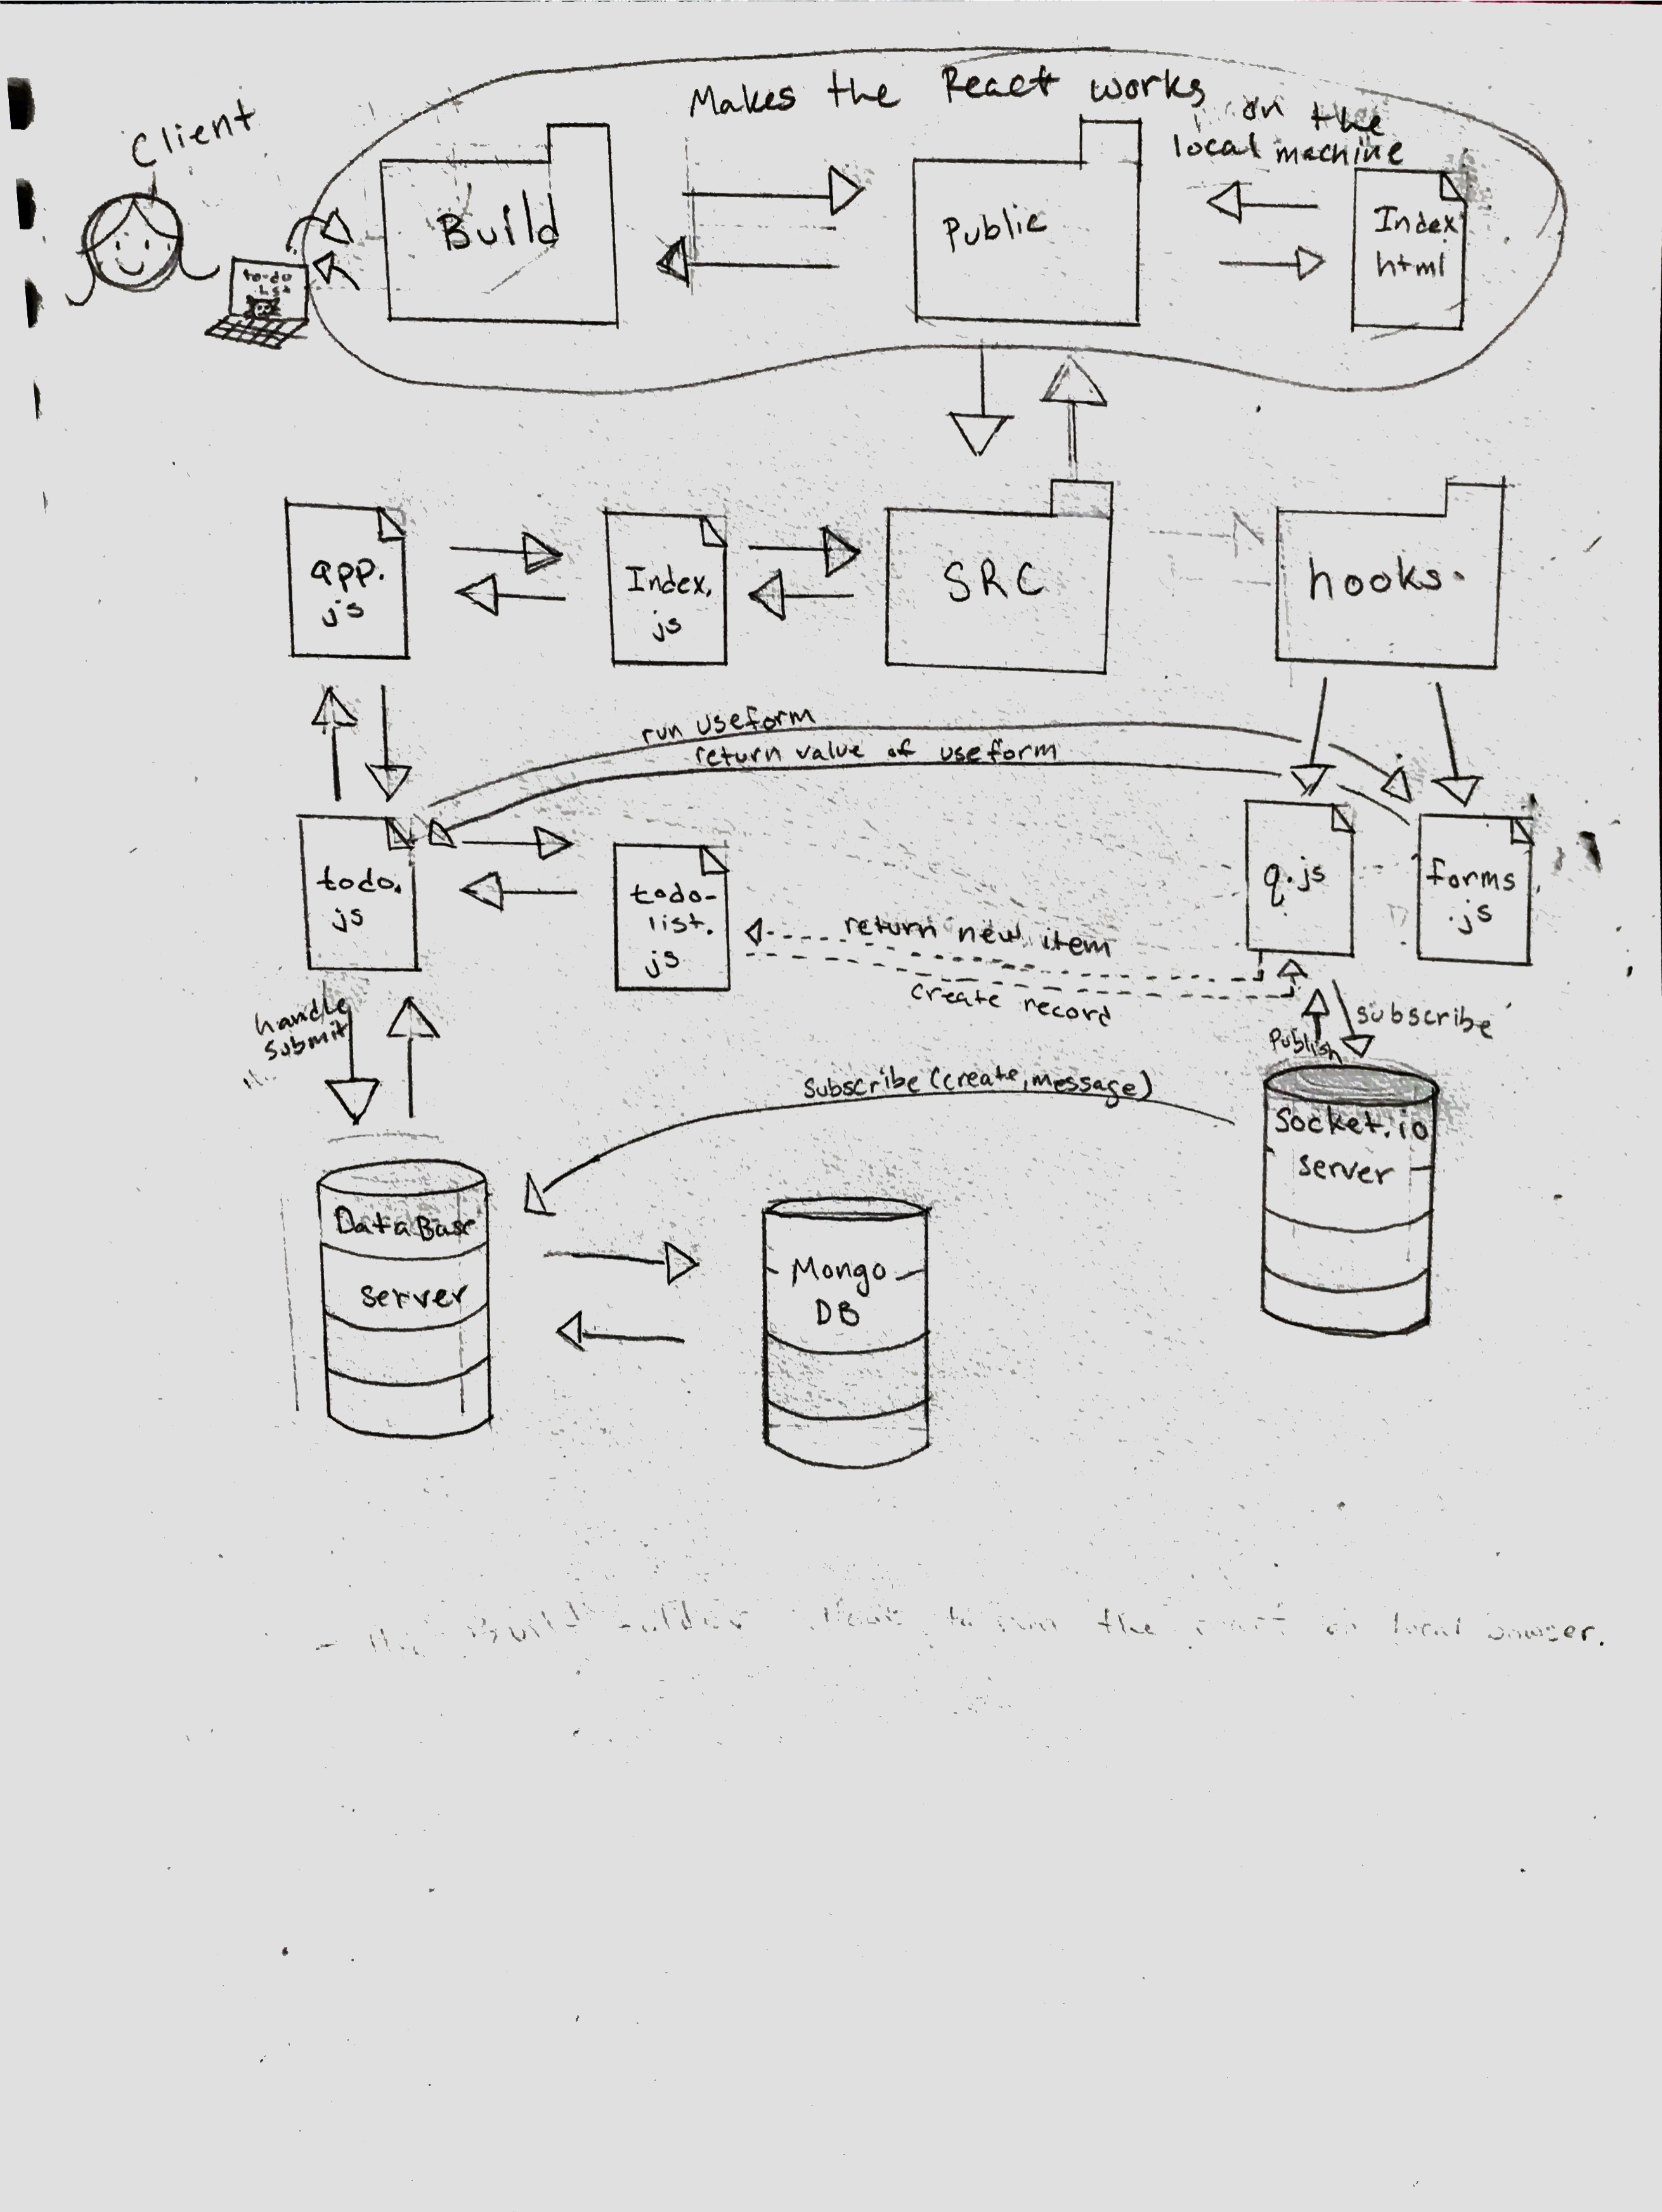 Makes the React works
on the
local machine
Client
to-do
list
Build
Public
Index
html
app.
js
Index.
js
SRC
hooks.
run useform
return value of useform
todo.
js
todo-
list.
js
q.js
forms
.js
return new item
create record
handle
submit
Publish
subscribe
Subscribe (create, message)
Socket.io
server
DataBase
server
Mongo
DB
the
local